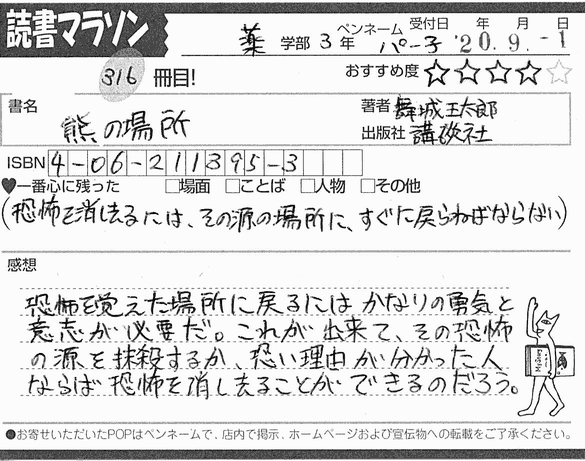 読書マラソン
薬 学部 3 年 ペンネーム パー子 受付日 年 月 日 '20.9.-1
316 冊目!
おすすめ度 ☆☆☆☆☆
書名 熊の場所
著者 舞城王太郎
出版社 講談社
ISBN 4-06-211395-3
♥一番心に残った □場面 □ことば □人物 □その他
(恐怖を消し去るには、その源の場所に、すぐに戻らねばならない)
感想
恐怖を覚えた場所に戻るにはかなりの勇気と
意志が必要だ。これが出来て、その恐怖
の源を抹殺するか、恐い理由が分かった人
ならば恐怖を消し去ることができるのだろう。
●お寄せいただいたPOPはペンネームで、店内で掲示、ホームページおよび宣伝物への転載をご了承ください。